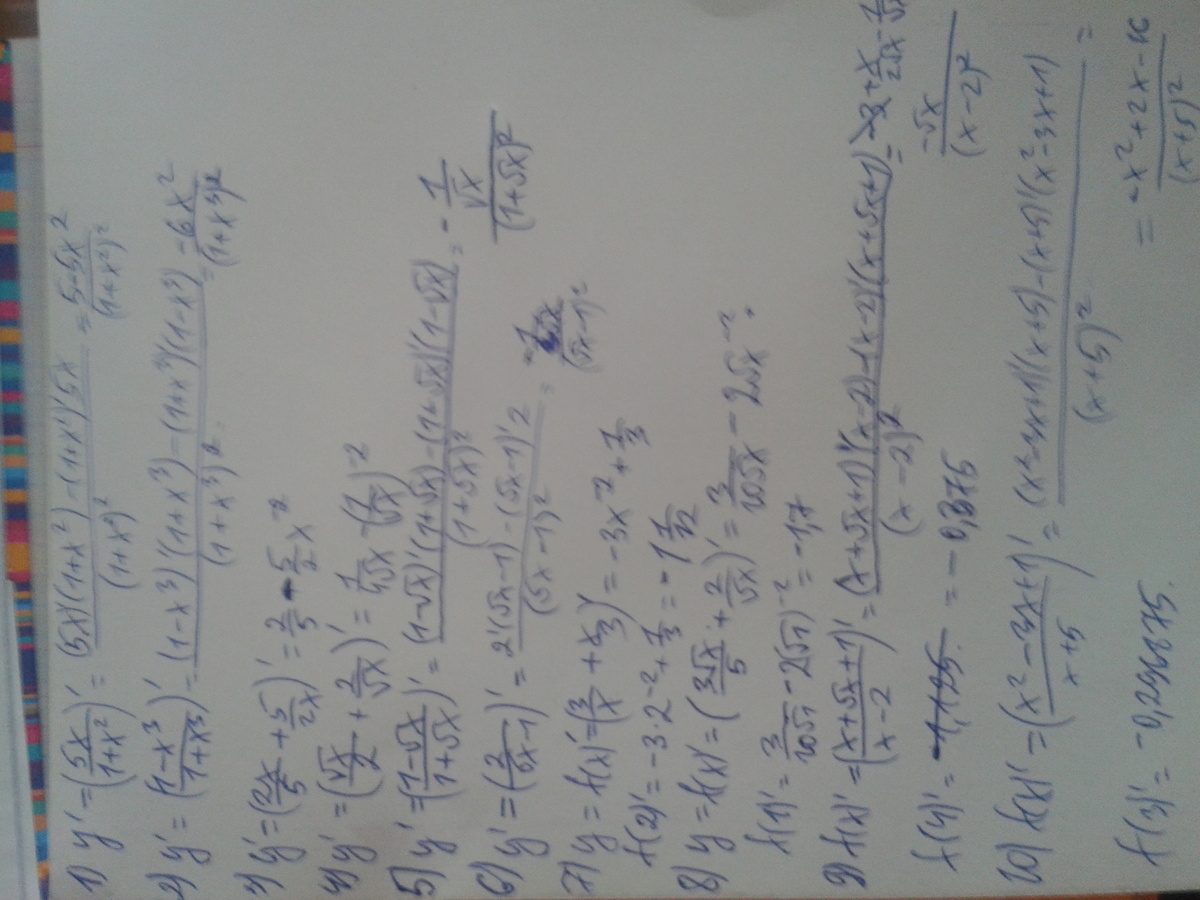 1) y' = (5x/(1+x²))' = ((5x)'(1+x²) - (1+x²)'5x)/(1+x²)² = (5-5x²)/(1+x²)²
2) y' = ((1-x³)/(1+x³))' = ((1-x³)'(1+x³) - (1+x³)'(1-x³))/(1+x³)² = -6x²/(1+x³)²
3) y' = (2x/5 + 5/2x)' = 2/5 - 5/2 x⁻²
4) y' = (√x/2 + 2/√x)' = 1/4√x - (1/√x)⁻²
5) y' = ((1-√x)/(1+√x))' = ((1-√x)'(1+√x) - (1+√x)'(1-√x))/(1+√x)² = - (1/√x)/(1+√x)²
6) y' = (2/(√x-1))' = (2'(√x-1) - (√x-1)'2)/(√x-1)² = /(√x-1)²
7) y = f(x)' = (3/x + x/3)' = -3x⁻² + 1/3
f(2)' = -3·2⁻² + 1/3 =
8) y = f(x)' = (3√x/5 + 2/√x)' = 3/10√x - 2√x⁻².
f(1)' = 3/10√1 - 2√1)⁻² = -1,7
9) f(x)' = ((x+√x+1)/(x-2))' = ((x+√x+1)'(x-2) - (x-2)'(x+√x+1))/(x-2)² =
-√x/(x-2)²
f(4)' = = -0,875
10) f(x)' = ((x²-3x+1)/(x+5))' = ((x²-3x+1)'(x+5) - (x+5)'(x²-3x+1))/(x+5)² =
= (-x²+2x-16)/(x+5)²
f(3)' = -0,296875.